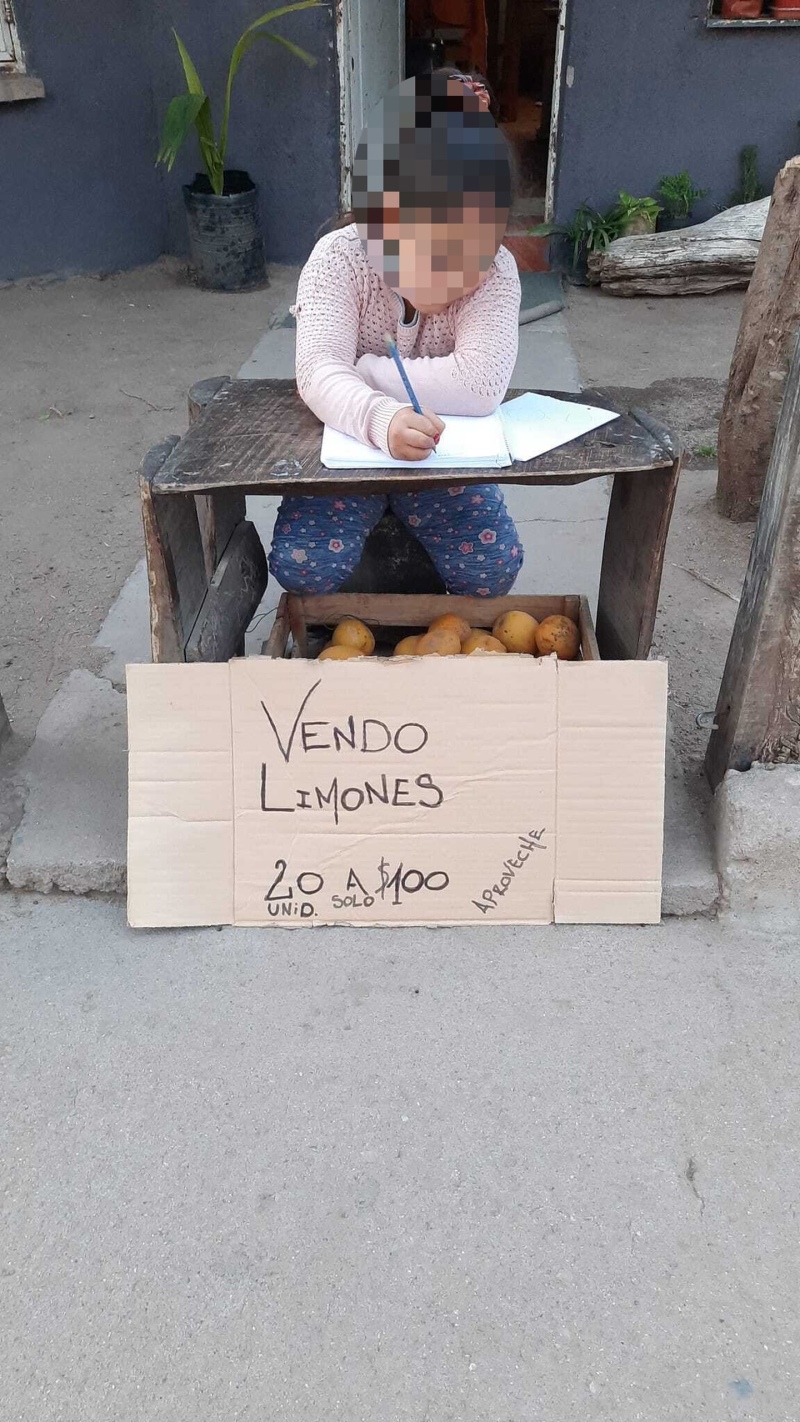 VENDO
LIMONES
20 A $100
UNiD. SOLO
APROVECHE